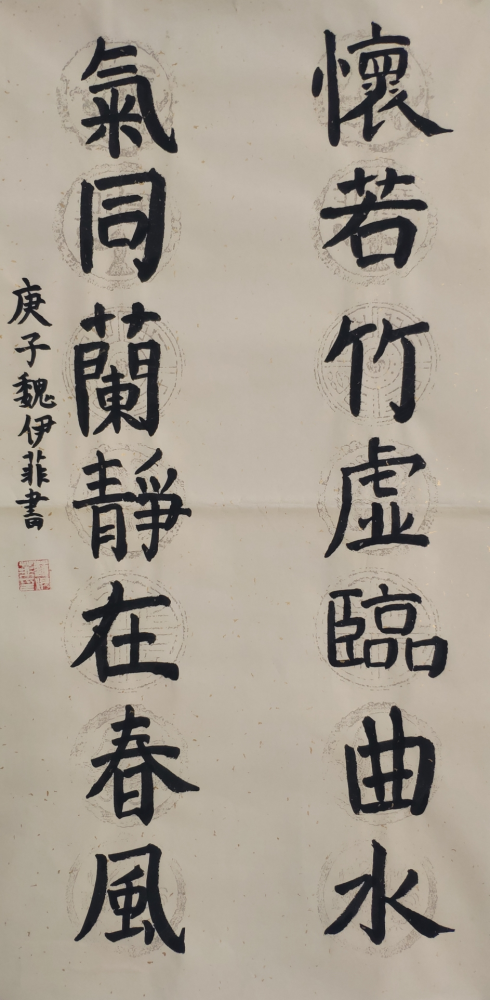 懷若竹虛臨曲水
氣同蘭靜在春風
庚子魏伊菲書